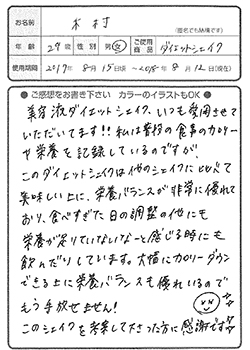 お名前 木村 (匿名でも結構です)
年齢 29歳 性別 男・女 ご使用商品 ダイエットシェイク
使用期間 2017年 8月 15日頃 ～2018年 8月 12日(現在)
●ご感想をお書き下さい カラーのイラストもOK●
美容液ダイエットシェイク、いつも愛用させて
いただいてます!!私は普段の食事のカロリー
や栄養を記録しているのですが、
このダイエットシェイクは他のシェイクに比べて
美味しい上に、栄養バランスが非常に優れて
おり、食べすぎた日の調整の他にも
栄養が足りていないなーと感じる時にも
飲んだりしています。大幅にカロリーダウン
できる上に栄養バランスも優れているので
もう手放せません!
このシェイクを考案して下さった方に感謝です!!